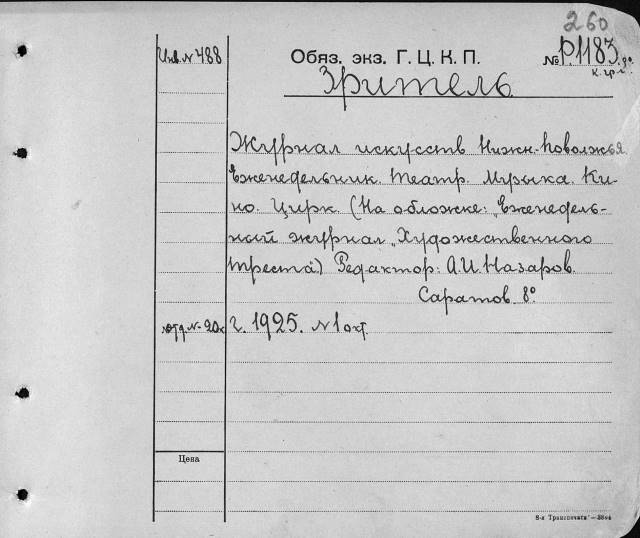 260
Инв. № 488
Обяз. экз. Г. Ц. К. П.
№ Р.1183
Зритель
Журнал искусств Нижн.-Поволжья.
Еженедельник. Театр. Музыка. Ки-
но. Цирк. (На обложке: „Еженедель-
ный журнал „Художественного
треста") Редактор: А.И. Назаров.
Саратов 8°.
г. 1925. № 1 окт.
Цена